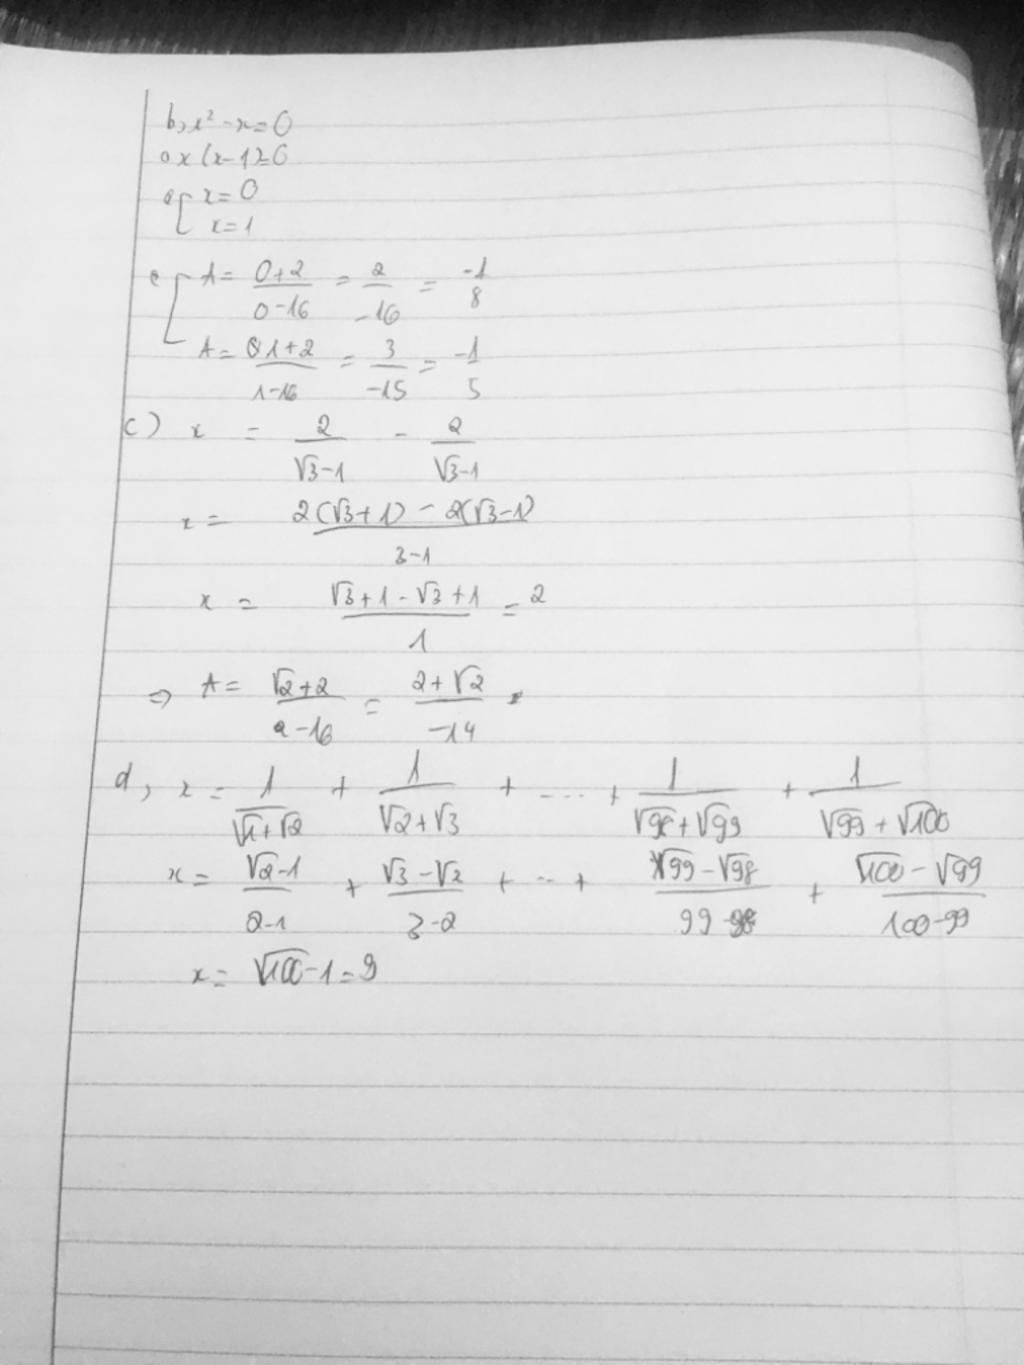 b, x² - x = 0
⇔ x (x - 1) = 0
⇔ [ x = 0
x = 1
⇔ [ A = (0+2)/(0-16) = 2/-16 = -1/8
A = (1+2)/(1-16) = 3/-15 = -1/5
c) x = 2/(√3-1) - 2/(√3-1)
x = (2(√3+1) - 2(√3-1))/(3-1)
x = (√3+1-√3+1)/1 = 2
⇒ A = (√2+2)/(2-16) = (2+√2)/-14
d, x = 1/(√1+√2) + 1/(√2+√3) + .... + 1/(√98+√99) + 1/(√99+√100)
x = (√2-1)/(2-1) + (√3-√2)/(3-2) + ... + (√99-√98)/(99-98) + (√100-√99)/(100-99)
x = √100-1 = 9